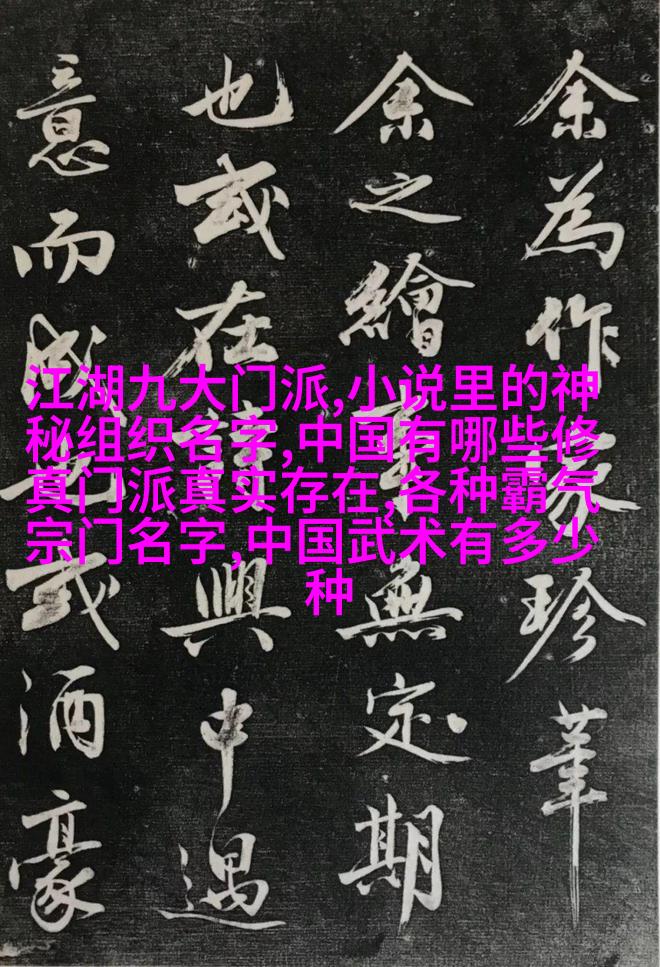 江湖九大门派,小说里的神
秘组织名字,中国有哪些修
真门派真实存在,各种霸气
宗门名字,中国武术有多少
种
余為作珍
余之繪事無定期
也或在興中遇
意而成或酒豪